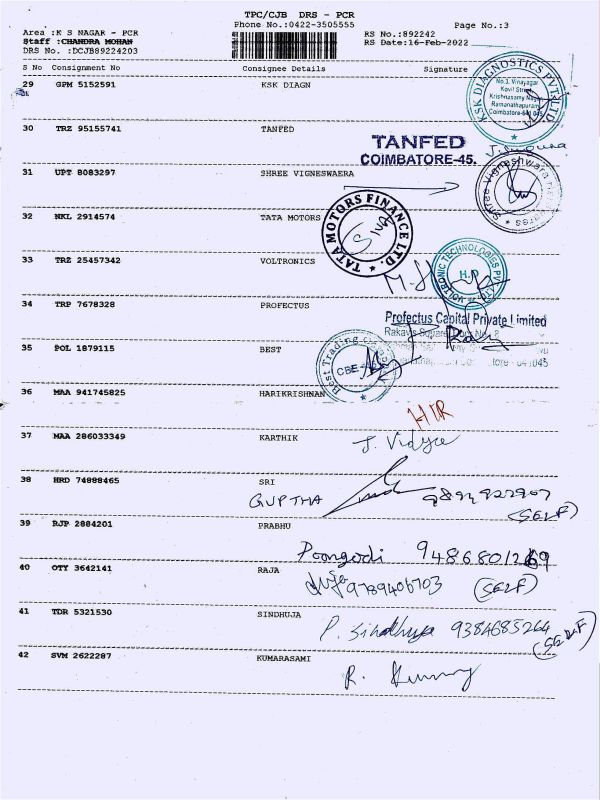 TPC/CJB DRS - PCR
Phone No.:0422-3505555
Page No.:3
Area :K S NAGAR - PCR
Staff :CHANDRA MOHAN
DRS No. :DCJB89224203
RS No.:892242
RS Date:16-Feb-2022
S No Consignment No Consignee Details Signature
29 GPM 5152591 KSK DIAGN
KSK DIAGNOSTICS PVT LTD
No.3, Vinayagar
Kovil Street
Krishnasamy Nagar
Ramanathapuram
Coimbatore-641 045
30 TRZ 95155741 TANFED
TANFED
COIMBATORE-45.
31 UPT 8083297 SHREE VIGNESWAERA
Shree Vigneshwara
32 NKL 2914574 TATA MOTORS
TATA MOTORS FINANCE LTD.
SIVA
33 TRZ 25457342 VOLTRONICS
VOLTRONIC TECHNOLOGIES PVT
H.O
34 TRP 7678328 PROFECTUS
Profectus Capital Private Limited
35 POL 1879115 BEST
Best Trading
CBE
36 MAA 941745825 HARIKRISHNAN
HIR
37 MAA 286033349 KARTHIK
J. Vidya
38 HRD 74888465 SRI
GUPTHA
(SELF)
39 RJP 2884201 PRABHU
Poongodi
40 OTY 3642141 RAJA
9789406703 (SELF)
41 TDR 5321530 SINDHUJA
P. Sindhuja 9384685264 (SELF)
42 SVM 2622287 KUMARASAMI
R.